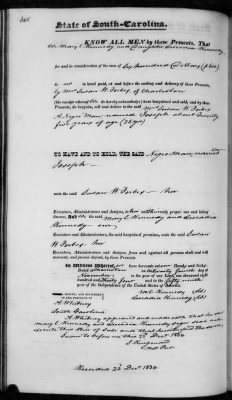 State of South-Carolina.
KNOW ALL MEN by these Presents, That
We Mary E. Kennedy and Leocadia Kennedy,
for and in consideration of the sum of Six Hundred Dollars ($600)
to us in hand paid, at and before the sealing and delivery of these Presents,
by Mrs Susan W. Forbes of Charleston
(the receipt whereof We do hereby acknowledge) have bargained and sold, and by these
Presents, do bargain, sell and deliver to the said Mrs Susan W. Forbes
A Negro Man named Joseph about Twenty
five years of age (25 yrs)
TO HAVE AND TO HOLD, THE SAID Negro Man, named
Joseph
unto the said Susan W Forbes her
Executors, Administrators and Assigns, to her and their only proper use and behoof,
forever. And We the said Mary E Kennedy and Leocadia
Kennedy our
Executors and Administrators, the said bargained premises, unto the said Susan
W Forbes, her
Executors, Administrators and Assigns, from and against all persons shall and will
warrant, and forever defend, by these Presents.
In Witness Whereof, We have hereunto set our Hands and Seals
Dated at Charleston on the Twenty fourth day of
November in the year of our Lord, one thousand
eight hundred and thirty four and in the fifty ninth
year of the Independence of the United States of America.
SIGNED, SEALED, AND DELIVERED
IN THE PRESENCE OF
A Whitney
M E Kennedy (LS)
Leocadia Kennedy (LS)
South Carolina
A Whitney appeared and made oath that he saw
Mary E. Kennedy and Leocadia Kennedy sign seal and
Sworn to before me this 23 Decr 1834
Recorded 23 Decr 1834